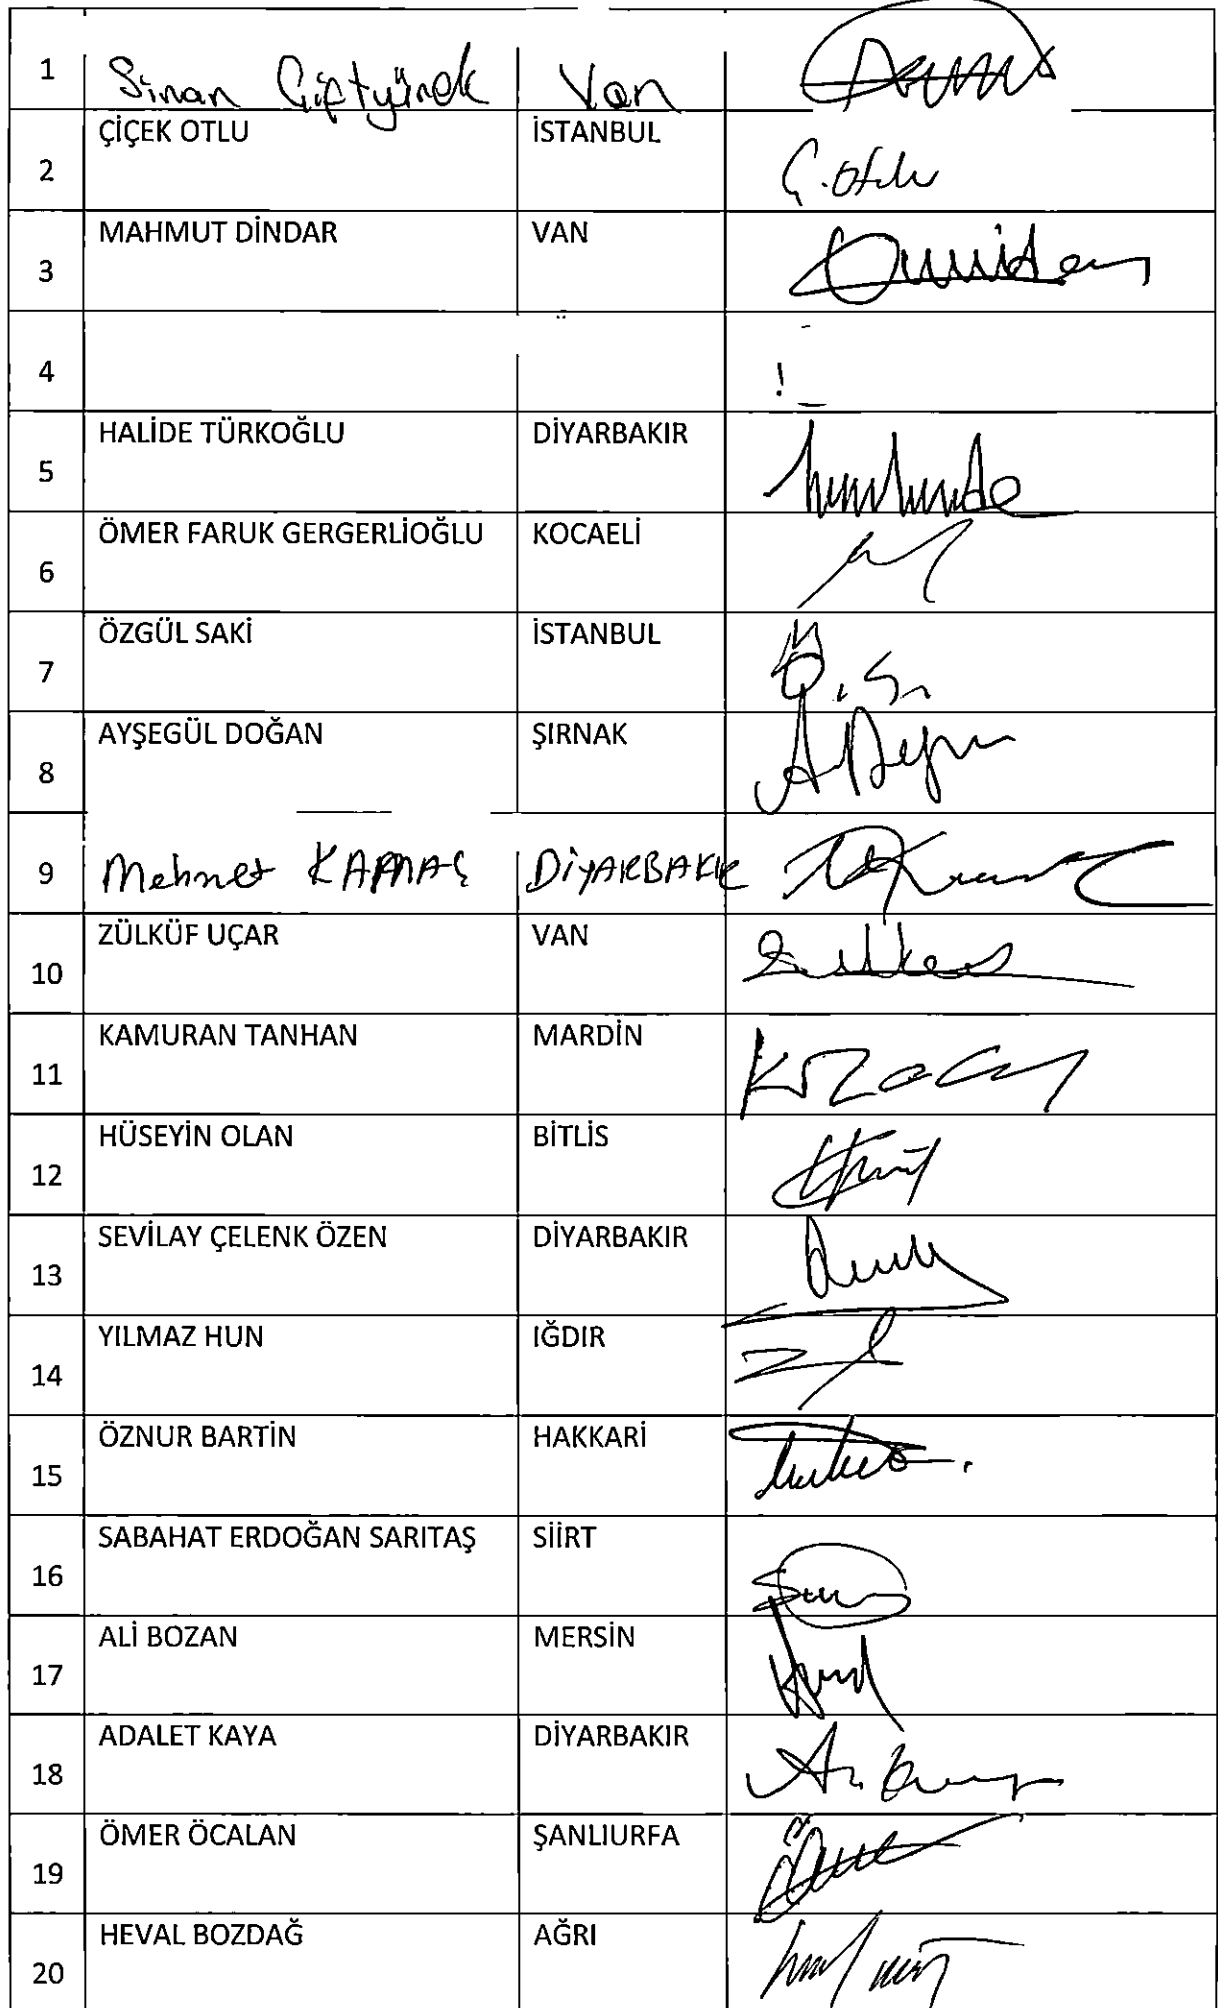 1 Sinan Çiftyürek Van
2 ÇİÇEK OTLU İSTANBUL Ç. Otlu
3 MAHMUT DİNDAR VAN
4
5 HALİDE TÜRKOĞLU DİYARBAKIR
6 ÖMER FARUK GERGERLİOĞLU KOCAELİ
7 ÖZGÜL SAKİ İSTANBUL
8 AYŞEGÜL DOĞAN ŞIRNAK
9 Mehmet KAMAÇ DİYARBAKIR
10 ZÜLKÜF UÇAR VAN
11 KAMURAN TANHAN MARDİN
12 HÜSEYİN OLAN BİTLİS
13 SEVİLAY ÇELENK ÖZEN DİYARBAKIR
14 YILMAZ HUN IĞDIR
15 ÖZNUR BARTİN HAKKARİ
16 SABAHAT ERDOĞAN SARITAŞ SİİRT
17 ALİ BOZAN MERSİN
18 ADALET KAYA DİYARBAKIR
19 ÖMER ÖCALAN ŞANLIURFA
20 HEVAL BOZDAĞ AĞRI